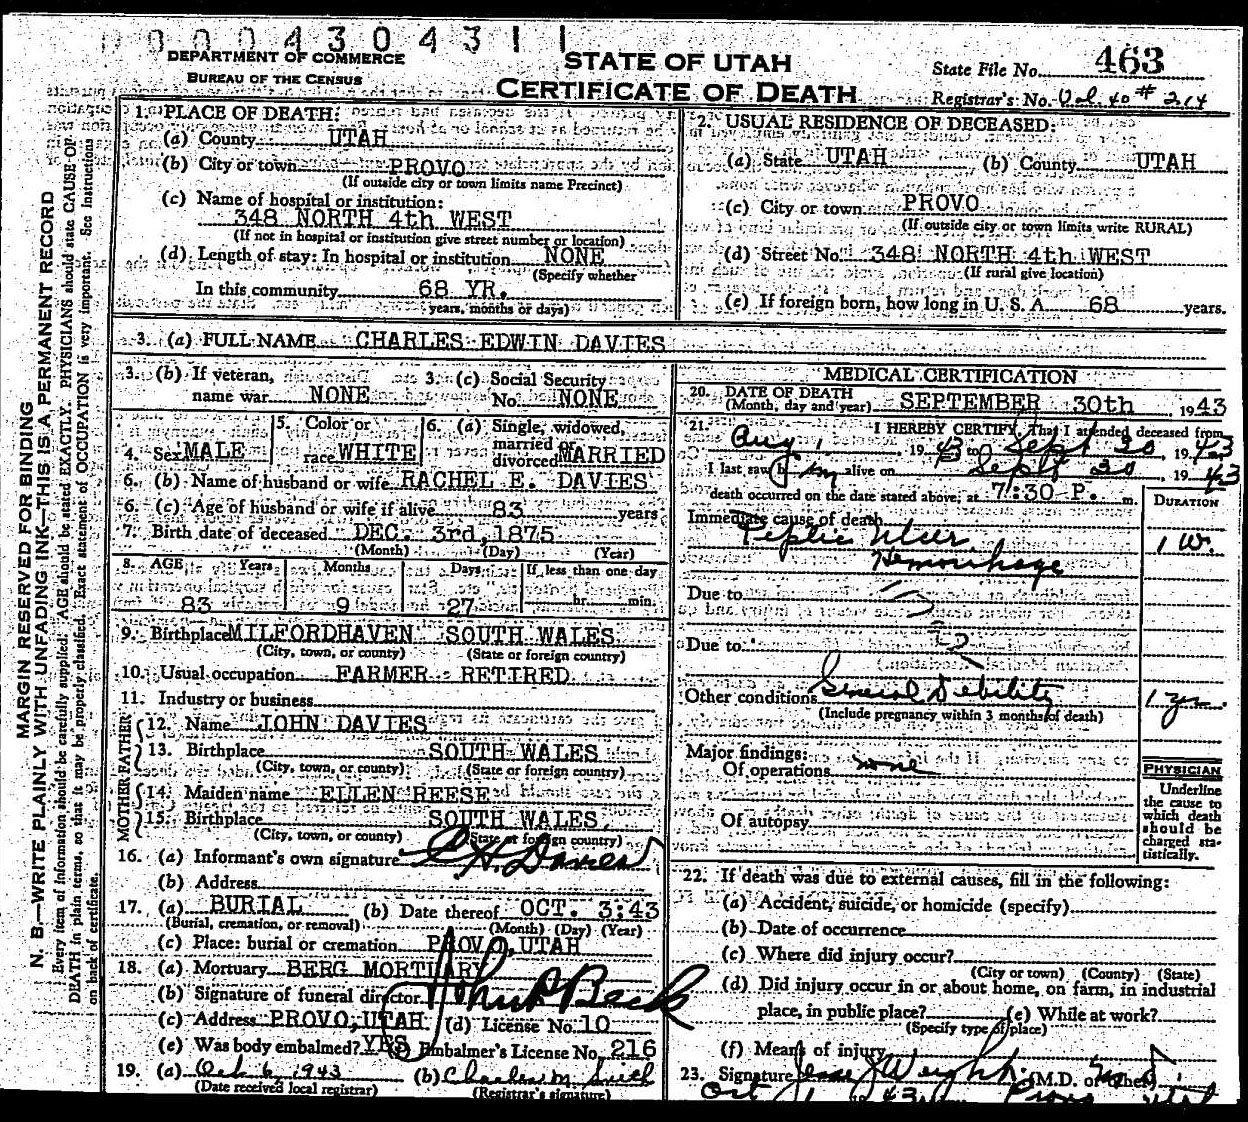 0004304311
DEPARTMENT OF COMMERCE
BUREAU OF THE CENSUS
STATE OF UTAH
CERTIFICATE OF DEATH
State File No. 463
Registrar's No. Vol. 40 # 214
MARGIN RESERVED FOR BINDING
N. B.—WRITE PLAINLY WITH UNFADING INK—THIS IS A PERMANENT RECORD
Every item of information should be carefully supplied. AGE should be stated EXACTLY. PHYSICIANS should state CAUSE OF
DEATH in plain terms, so that it may be properly classified. Exact statement of OCCUPATION is very important. See Instructions
on back of certificate.
1. PLACE OF DEATH:
(a) County UTAH
(b) City or town PROVO
(If outside city or town limits name Precinct)
(c) Name of hospital or institution:
348 NORTH 4th WEST
(If not in hospital or institution give street number or location)
(d) Length of stay: In hospital or institution NONE
(Specify whether
In this community 68 YR.
years, months or days)
2. USUAL RESIDENCE OF DECEASED:
(a) State UTAH (b) County UTAH
(c) City or town PROVO
(If outside city or town limits write RURAL)
(d) Street No. 348 NORTH 4th WEST
(If rural give location)
(e) If foreign born, how long in U. S. A. 68 years.
3. (a) FULL NAME CHARLES EDWIN DAVIES
3. (b) If veteran, name war NONE
3. (c) Social Security No. NONE
4. Sex MALE
5. Color or race WHITE
6. (a) Single, widowed, married or divorced MARRIED
6. (b) Name of husband or wife RACHEL E. DAVIES
6. (c) Age of husband or wife if alive 83 years
7. Birth date of deceased DEC. 3rd, 1875
(Month) (Day) (Year)
8. AGE Years Months Days If less than one day
83 9 27 hr. min.
9. Birthplace MILFORDHAVEN SOUTH WALES
(City, town, or county) (State or foreign country)
10. Usual occupation FARMER - RETIRED
11. Industry or business
FATHER
12. Name JOHN DAVIES
13. Birthplace SOUTH WALES
(City, town, or county) (State or foreign country)
MOTHER
14. Maiden name ELLEN REESE
15. Birthplace SOUTH WALES
(City, town, or county) (State or foreign country)
16. (a) Informant's own signature C H. Davies
(b) Address
17. (a) BURIAL (b) Date thereof OCT. 3:43
(Burial, cremation, or removal) (Month) (Day) (Year)
(c) Place: burial or cremation PROVO, UTAH
18. (a) Mortuary BERG MORTUARY
(b) Signature of funeral director
(c) Address PROVO, UTAH (d) License No. 10
(e) Was body embalmed? YES Embalmer's License No. 216
19. (a) Oct 6, 1943 (b) Charles M. Smith
(Date received local registrar) (Registrar's signature)
MEDICAL CERTIFICATION
20. DATE OF DEATH
(Month, day and year) SEPTEMBER 30th, 1943
21. I HEREBY CERTIFY, That I attended deceased from
Aug 1, 1943 to Sept 30, 1943
I last saw him alive on Sept 30, 1943
death occurred on the date stated above, at 7:30 P. m.
DURATION
Immediate cause of death
Peptic Ulcer 1 W.
Hemorrhage
Due to
Due to
Other conditions General Debility 1 yr.
(Include pregnancy within 3 months of death)
Major findings:
Of operations none
Of autopsy
PHYSICIAN
Underline
the cause to
which death
should be
charged sta-
tistically.
22. If death was due to external causes, fill in the following:
(a) Accident, suicide, or homicide (specify)
(b) Date of occurrence
(c) Where did injury occur?
(City or town) (County) (State)
(d) Did injury occur in or about home, on farm, in industrial
place, in public place? (e) While at work?
(Specify type of place)
(f) Means of injury
23. Signature (M.D. or other)
Oct 1943 Provo Utah